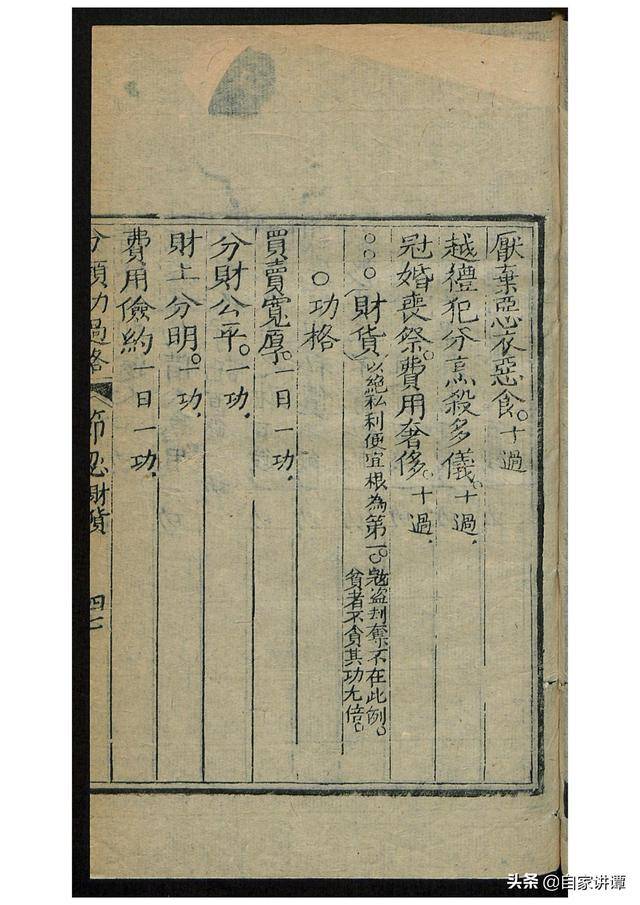 厭棄惡衣惡食。十過
越禮犯分烹殺多儀。十過.
冠婚喪祭。費用奢侈。十過.
○○○(財貨)以絕私利便宜根為第一。
寇盗刦奪不在此例。
貧者不貪其功九倍。
○功格
買賣寬厚。一日一功.
分財公平。一功.
財上分明。一功.
費用儉約一日一功.
分類功過格 節忍財貨 四七
头条 @自家讲谭